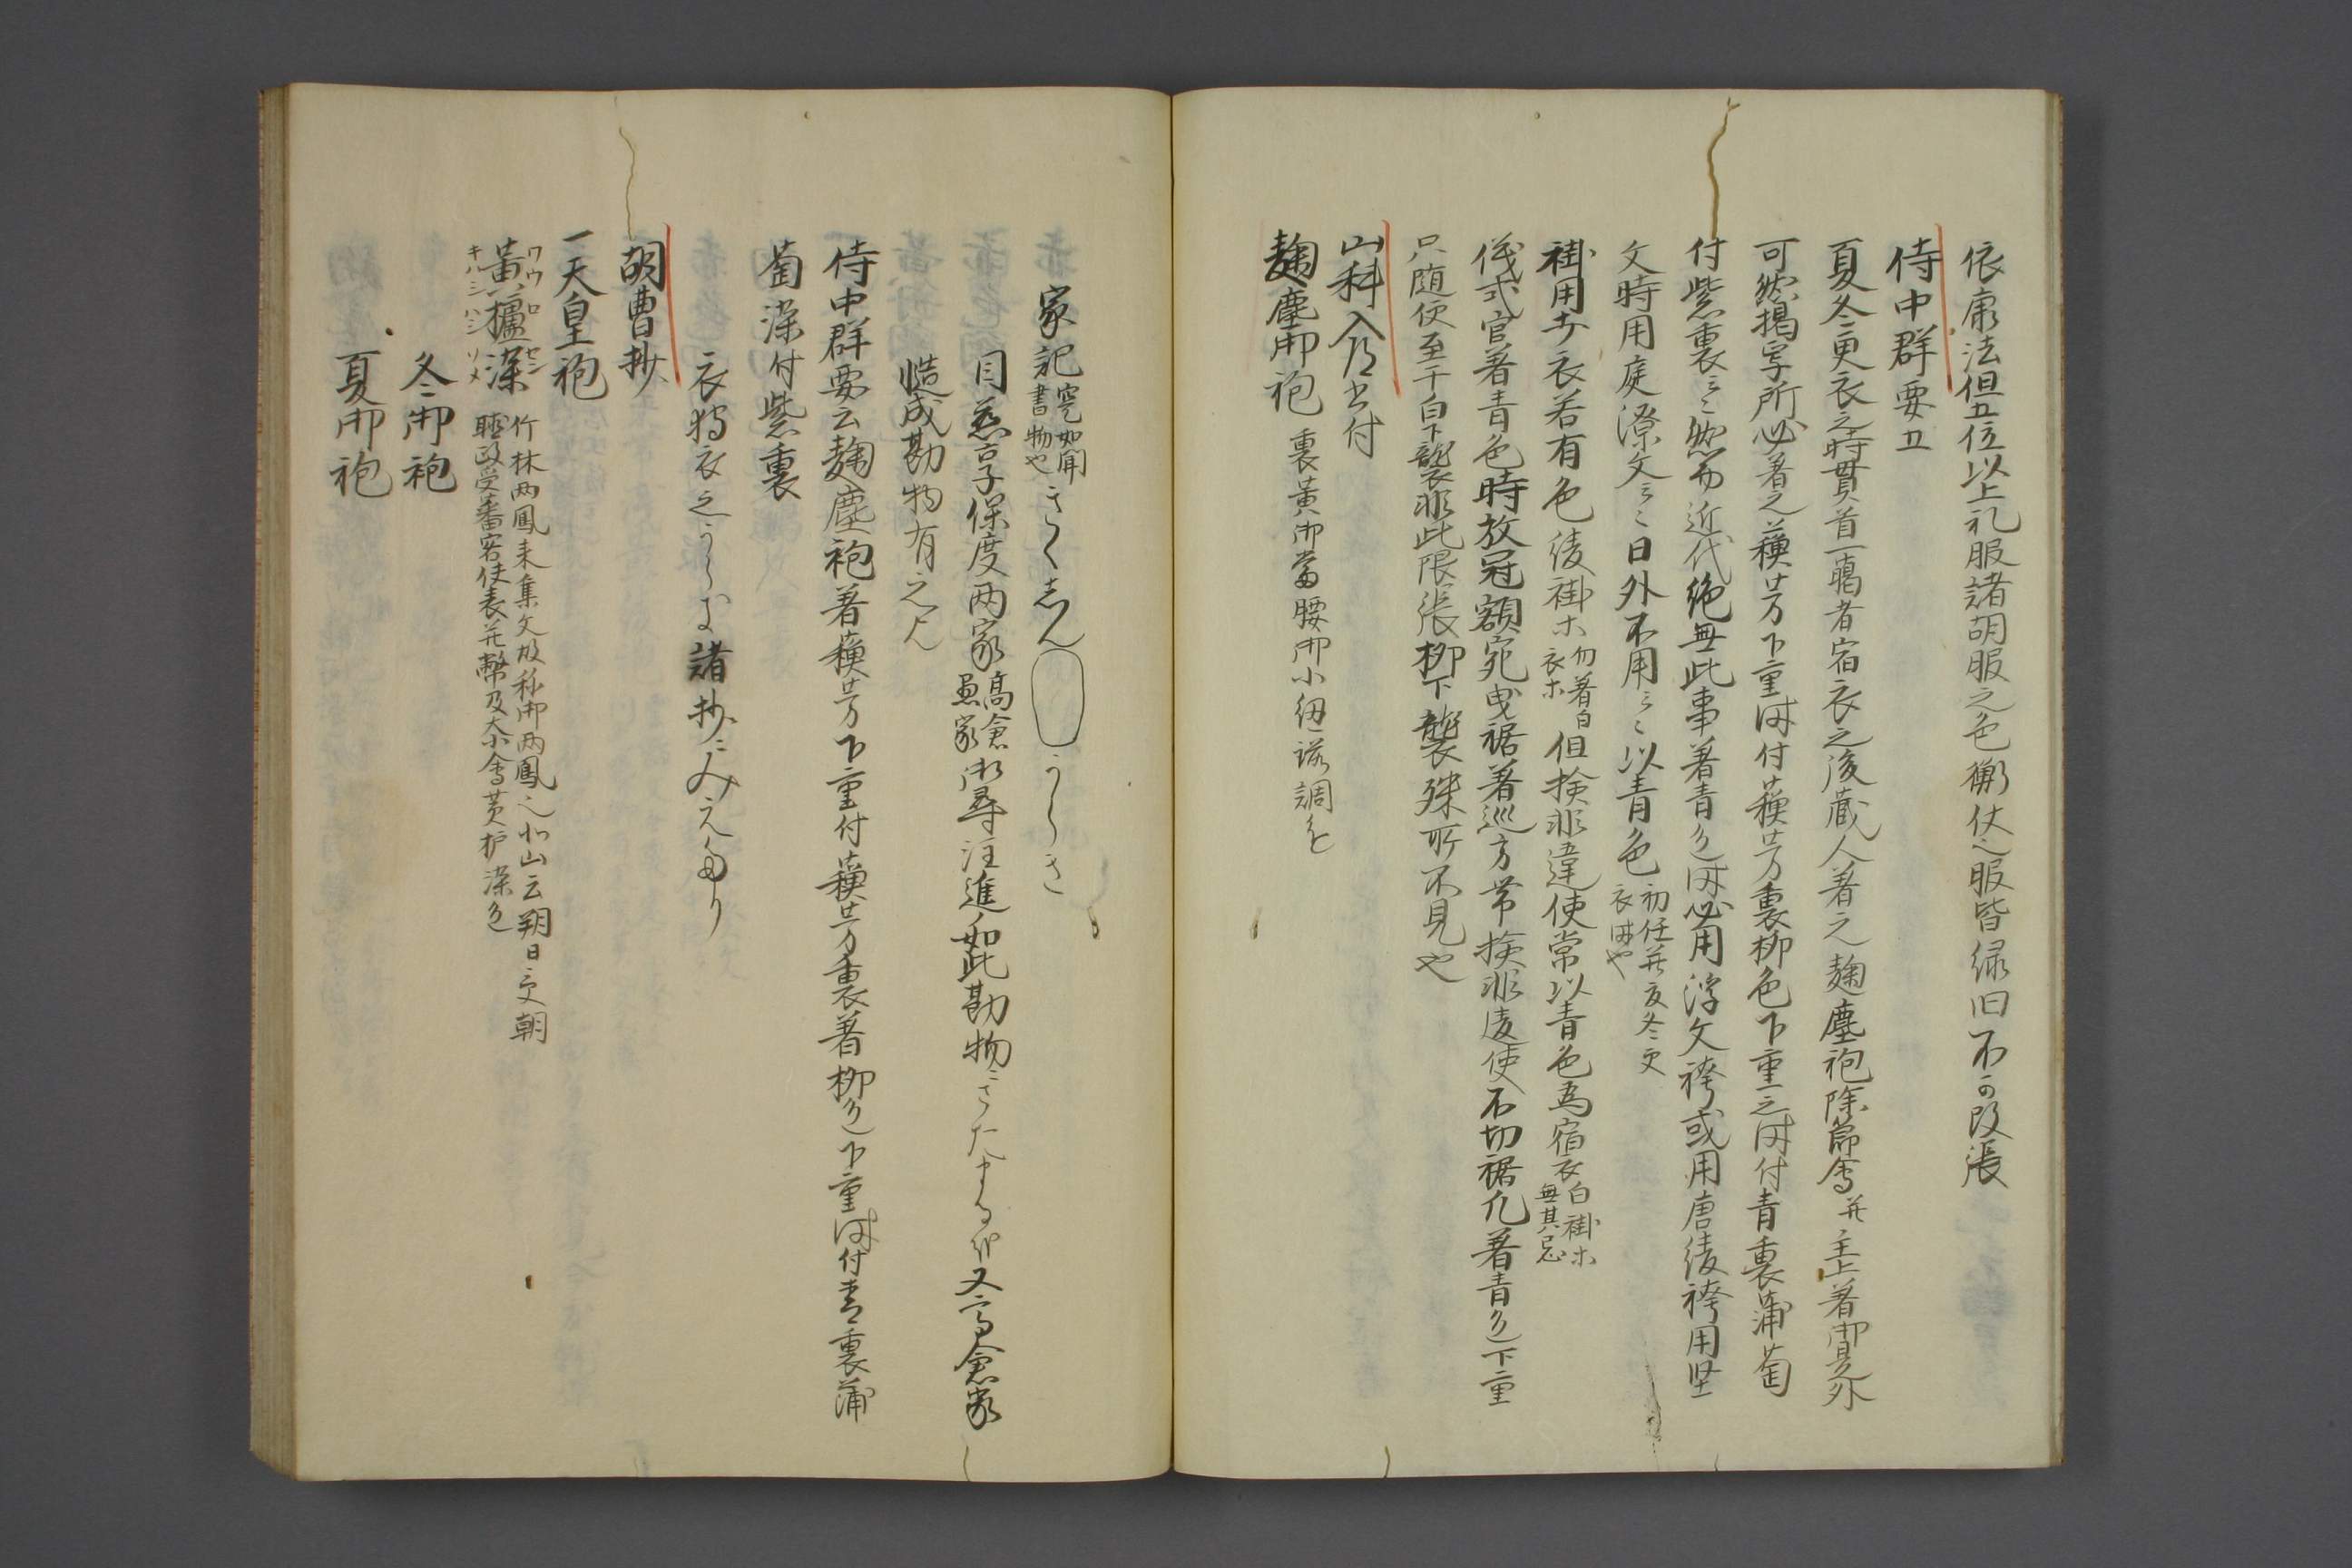 依唐法但五位以上礼服諸胡服之色衛仗之服皆緑旧不可改張
侍中群要五
夏冬更衣之時貫首一﨟者宿衣之後蔵人着之麹塵袍除節会并主上着御是外
可然揭写所必着之蘓芳下重時付蘓芳裏柳色下重之時付青裏蒲萄
付紫裏云々然而近代絶無此事着青色時必用浮文袴或用唐綾袴用堅
文時用庭潦文云々日外不用云々以青色
初任并夏冬更
衣時也
褂用市衣若有色綾褂ホ
勿着白
衣ホ
但検非違使常以青色為宿衣
白褂ホ
無其忌
儀式官着青色時放冠額宛曳裾着巡方帯検非違使不切裾凡着青色下重
只随便至于白下襲非此限張柳下襲殊所不見也
山科入道書付
麹塵御袍 裏黄御当腰御小紐諸調色
家記
寔如聞
書物也
きくちん うらき
目慈言子保度両家
高倉
愚家
御尋注進如此勘物ニさたまる候又高倉家
慥成勘物有之候
侍中群要云麹塵袍着蘓芳下重付蘓芳裏着柳色下重時付青裏蒲
萄染付紫裏
衣狩衣之うらお諸抄ニみえたり
胡曹抄
一天皇袍
黄櫨染
ワウロセン
キハミハシソメ
竹林両鳳来集文故称御両鳳之北山云朔日受朝
聴政受蕃客使表并幣及大小会黄櫨染色
冬御袍
夏御袍